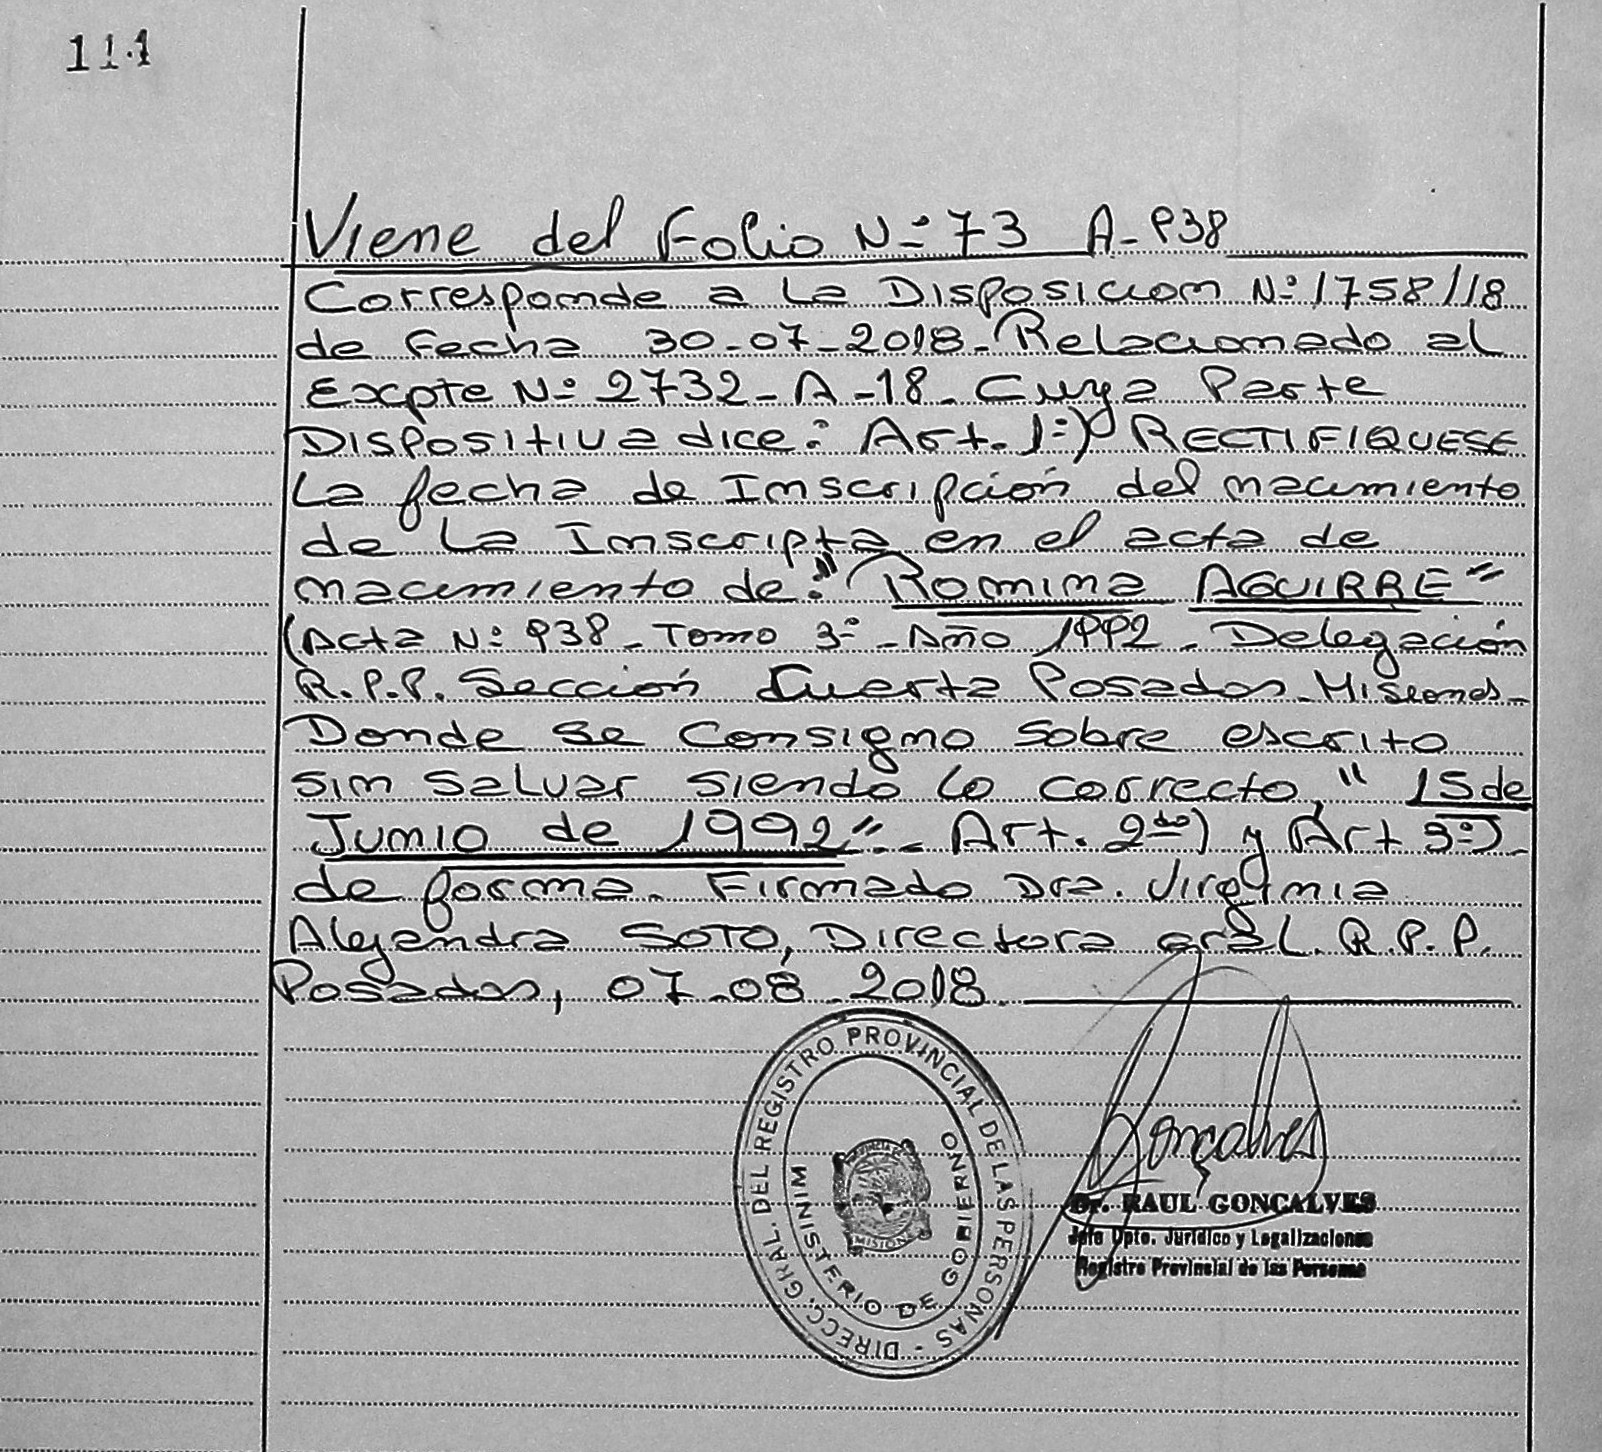 114
Viene del Folio Nº 73 A-938
Corresponde a la Disposicion Nº 1758/18
de Fecha 30-07-2018- Relacionado al
Excpte Nº 2732-A-18- Cuya Parte
Dispositiva dice: Art. 1º) RECTIFIQUESE
La fecha de Inscripción del nacimiento
de La Inscripta en el acta de
nacimiento de: "ROMINA AGUIRRE"
(Acta Nº 938- Tomo 3º- Año 1992- Delegación
R.P.P. Sección Cuarta Posadas-Misiones-
Donde se Consigno Sobre escrito
sin salvar siendo lo correcto, " 15 de
Junio de 1992"- Art. 2do) y Art 3º)-
de forma. Firmado Dra. Virginia
Alejandra SOTO, Directora Gral. R.P.P.
Posadas, 07-08-2018
DIRECC. GRAL. DEL REGISTRO PROVINCIAL DE LAS PERSONAS -
MINISTERIO DE GOBIERNO
MISIONES
Gonçalves
Dr. RAUL GONCALVES
Jefe Dpto. Jurídico y Legalizaciones
Registro Provincial de las Personas